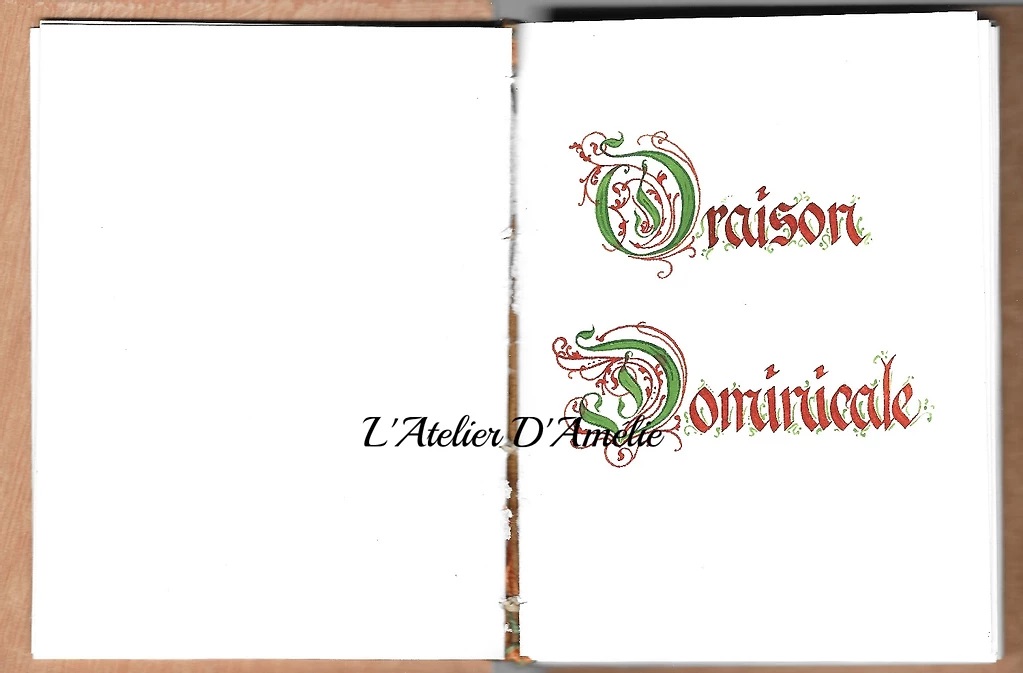 Oraison
Dominicale
L'Atelier D'Amelie